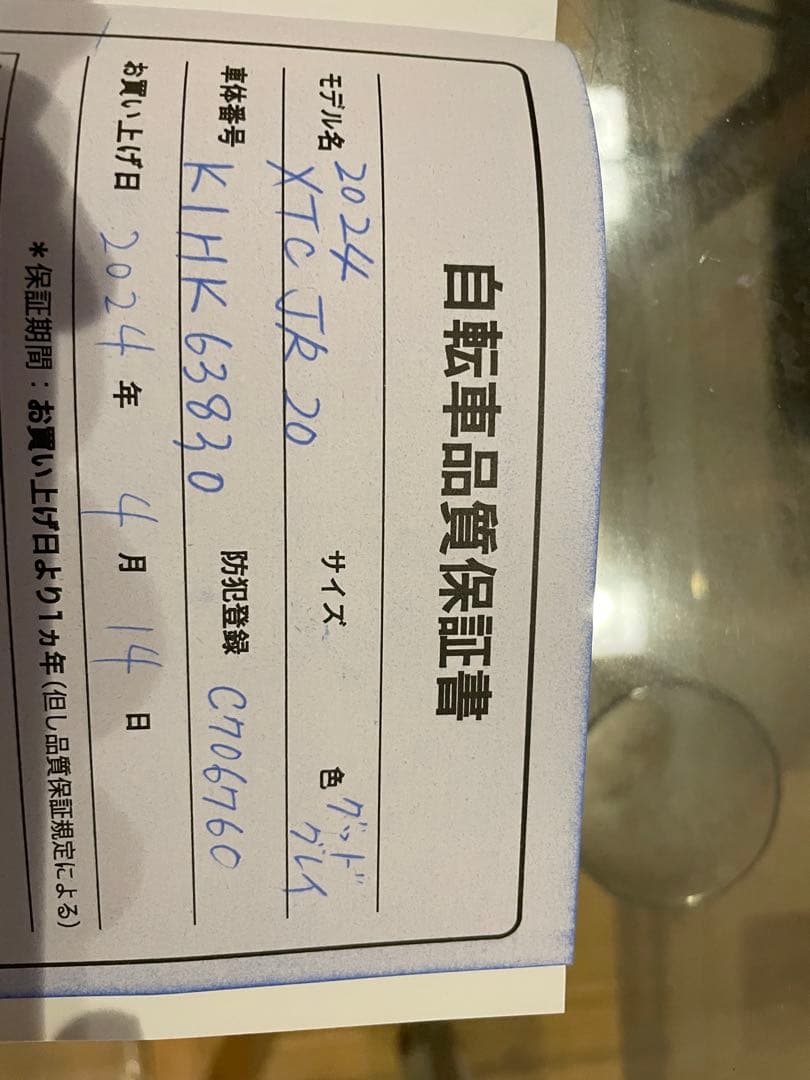 自転車品質保証書
モデル名 2024 XTC JR 20 サイズ 色 グッドグレイ
車体番号 K1HK63830 防犯登録 C706760
お買い上げ日 2024年 4月 14日
*保証期間：お買い上げ日より1ヵ年(但し品質保証規定による)